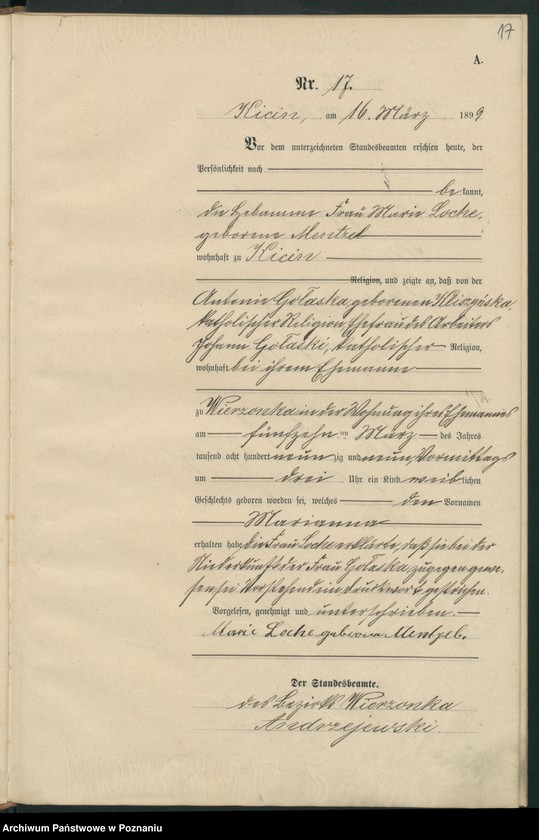 17
A.
Nr. 17.
Kicin, am 16. März 1899
Vor dem unterzeichneten Standesbeamten erschien heute, der
Persönlichkeit nach
bekannt,
die Hebamme Frau Marie Loche,
geborene Mentzel
wohnhaft zu Kicin
Religion, und zeigte an, daß von der
Antonie Gołaska, geborenen Kliczyńska,
katholischer Religion Ehefrau des Arbeiters
Johann Gołaski, katholischer Religion,
wohnhaft bei ihrem Ehemanne
zu Wierzonka in der Wohnung ihres Ehemannes
am fünfzehnten März des Jahres
tausend acht hundert neunzig und neun, Vormittags
um drei Uhr ein Kind weiblichen
Geschlechts geboren worden sei, welches den Vornamen
Marianna
erhalten habe, die Frau Loche erklärte, daß sie bei der
Niederkunft der Frau Gołaska, zugegen gewe-
sen sei. Vorstehend ein Druckwort gestrichen.
Vorgelesen, genehmigt und unterschrieben.
Marie Loche geborene Mentzel.
Der Standesbeamte.
des Bezirks Wierzonka
Andrzejewski.
Archiwum Państwowe w Poznaniu